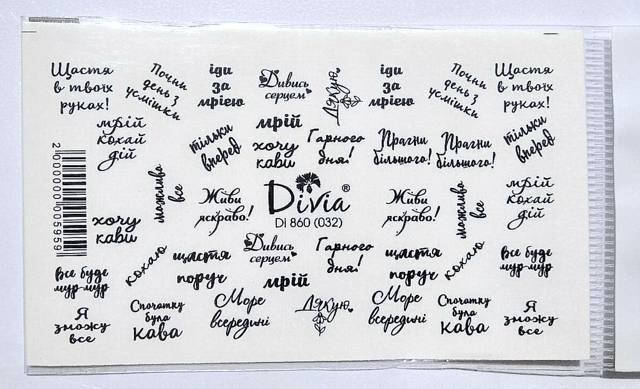 Щастя
в твоїх
руках!
Почни
день з
усмішки
іди
за
мрією
Дивись
серцем
Дякую
іди
за
мрією
Почни
день з
усмішки
Щастя
в твоїх
руках!
мрій
кохай
дій
тільки
вперед
мрій
хочу
кави
Гарного
дня!
Прагни
більшого!
Прагни
більшого!
тільки
вперед
2 000000 005959
хочу
кави
можливо
все
Живи
яскраво!
Divia®
Di 860 (032)
Живи
яскраво!
можливо
все
мрій
кохай
дій
Все буде
мур-мур
кохаю
щастя
поруч
Дивись
серцем
мрій
Гарного
дня!
щастя
поруч
кохаю
Все буде
мур-мур
Я
зможу
все
Спочатку
була
кава
Море
всередині
Дякую
Море
всередині
Спочатку
була
кава
Я
зможу
все